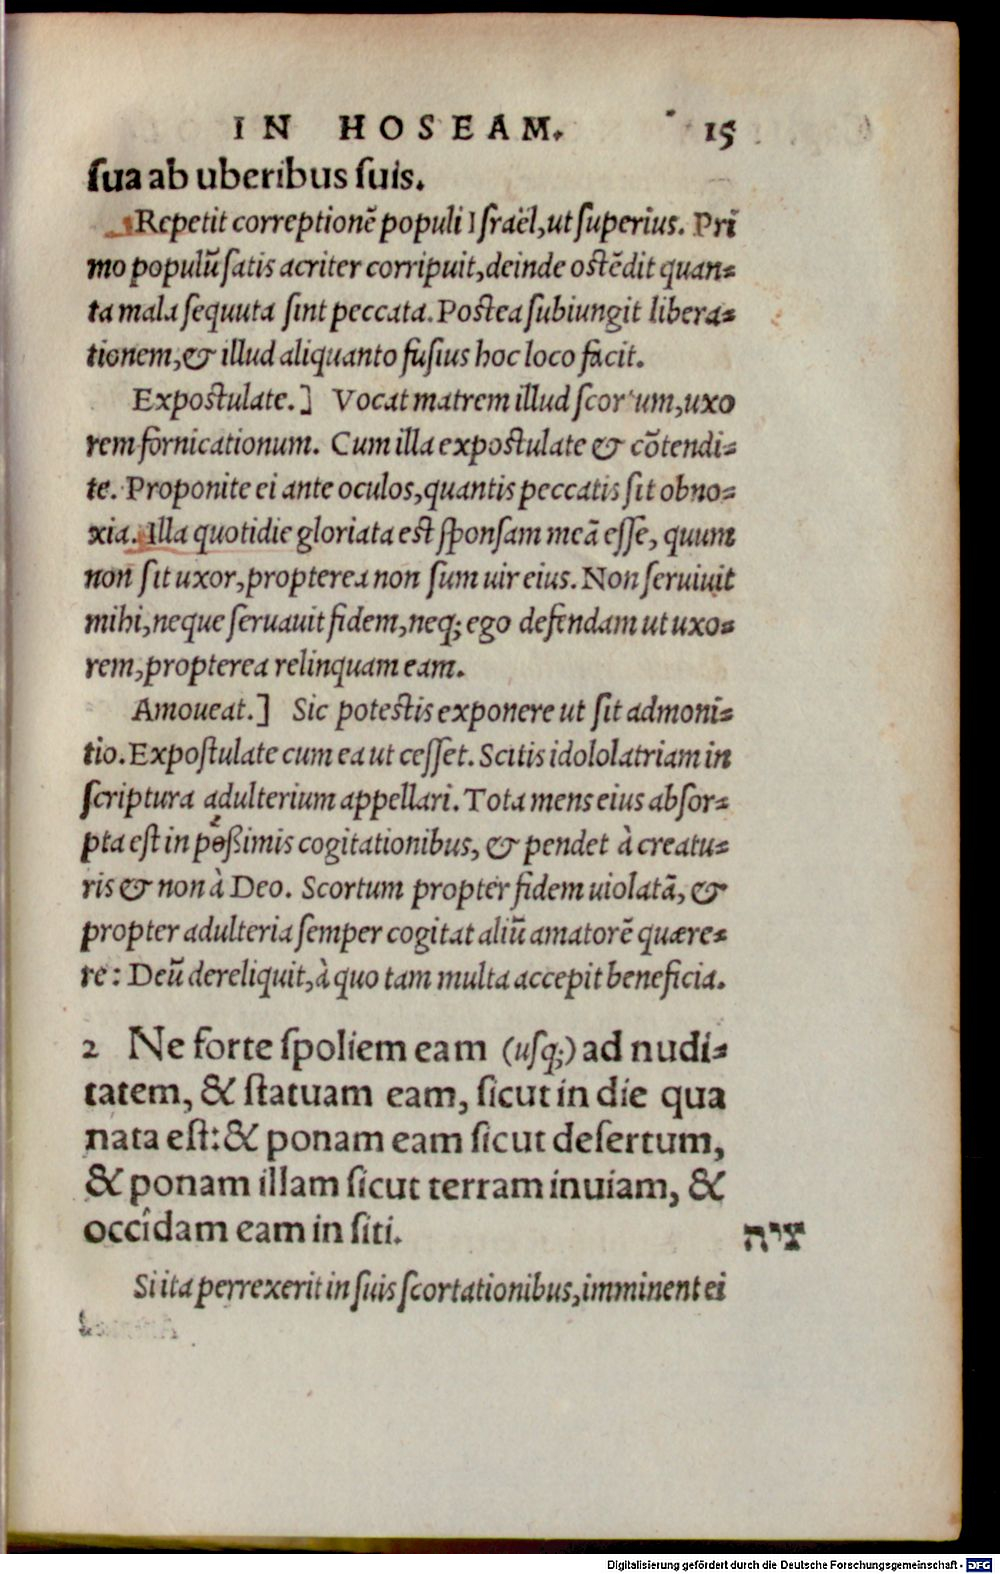 IN HOSEAM. 15
ſua ab uberibus ſuis.
Repetit correptionē populi Iſraël, ut ſuperius. Pri
mo populū ſatis acriter corripuit, deinde oſtēdit quan=
ta mala ſequuta ſint peccata. Poſtea ſubiungit libera=
tionem, & illud aliquanto fuſius hoc loco facit.
Expoſtulate.] Vocat matrem illud ſcortum, uxo
rem fornicationum. Cum illa expoſtulate & cōtendi=
te. Proponite ei ante oculos, quantis peccatis ſit obno=
xia. Illa quotidie gloriata eſt ſponſam meā eſſe, quum
non ſit uxor, propterea non ſum uir eius. Non ſeruiuit
mihi, neque ſeruauit fidem, neq; ego defendam ut uxo=
rem, propterea relinquam eam.
Amoueat.] Sic poteſtis exponere ut ſit admoni=
tio. Expoſtulate cum ea ut ceſſet. Scitis idololatriam in
ſcriptura adulterium appellari. Tota mens eius abſor=
pta eſt in poßimis cogitationibus, & pendet à creatu=
ris & non à Deo. Scortum propter fidem uiolatā, &
propter adulteria ſemper cogitat aliū amatorē quære=
re: Deū dereliquit, à quo tam multa accepit beneficia.
2 Ne forte ſpoliem eam (uſq;) ad nudi=
tatem, & ſtatuam eam, ſicut in die qua
nata eſt: & ponam eam ſicut deſertum,
& ponam illam ſicut terram inuiam, &
occîdam eam in ſiti. ציה
Si ita perrexerit in ſuis ſcortationibus, imminent ei
Digitalisierung gefördert durch die Deutsche Forschungsgemeinschaft - DFG